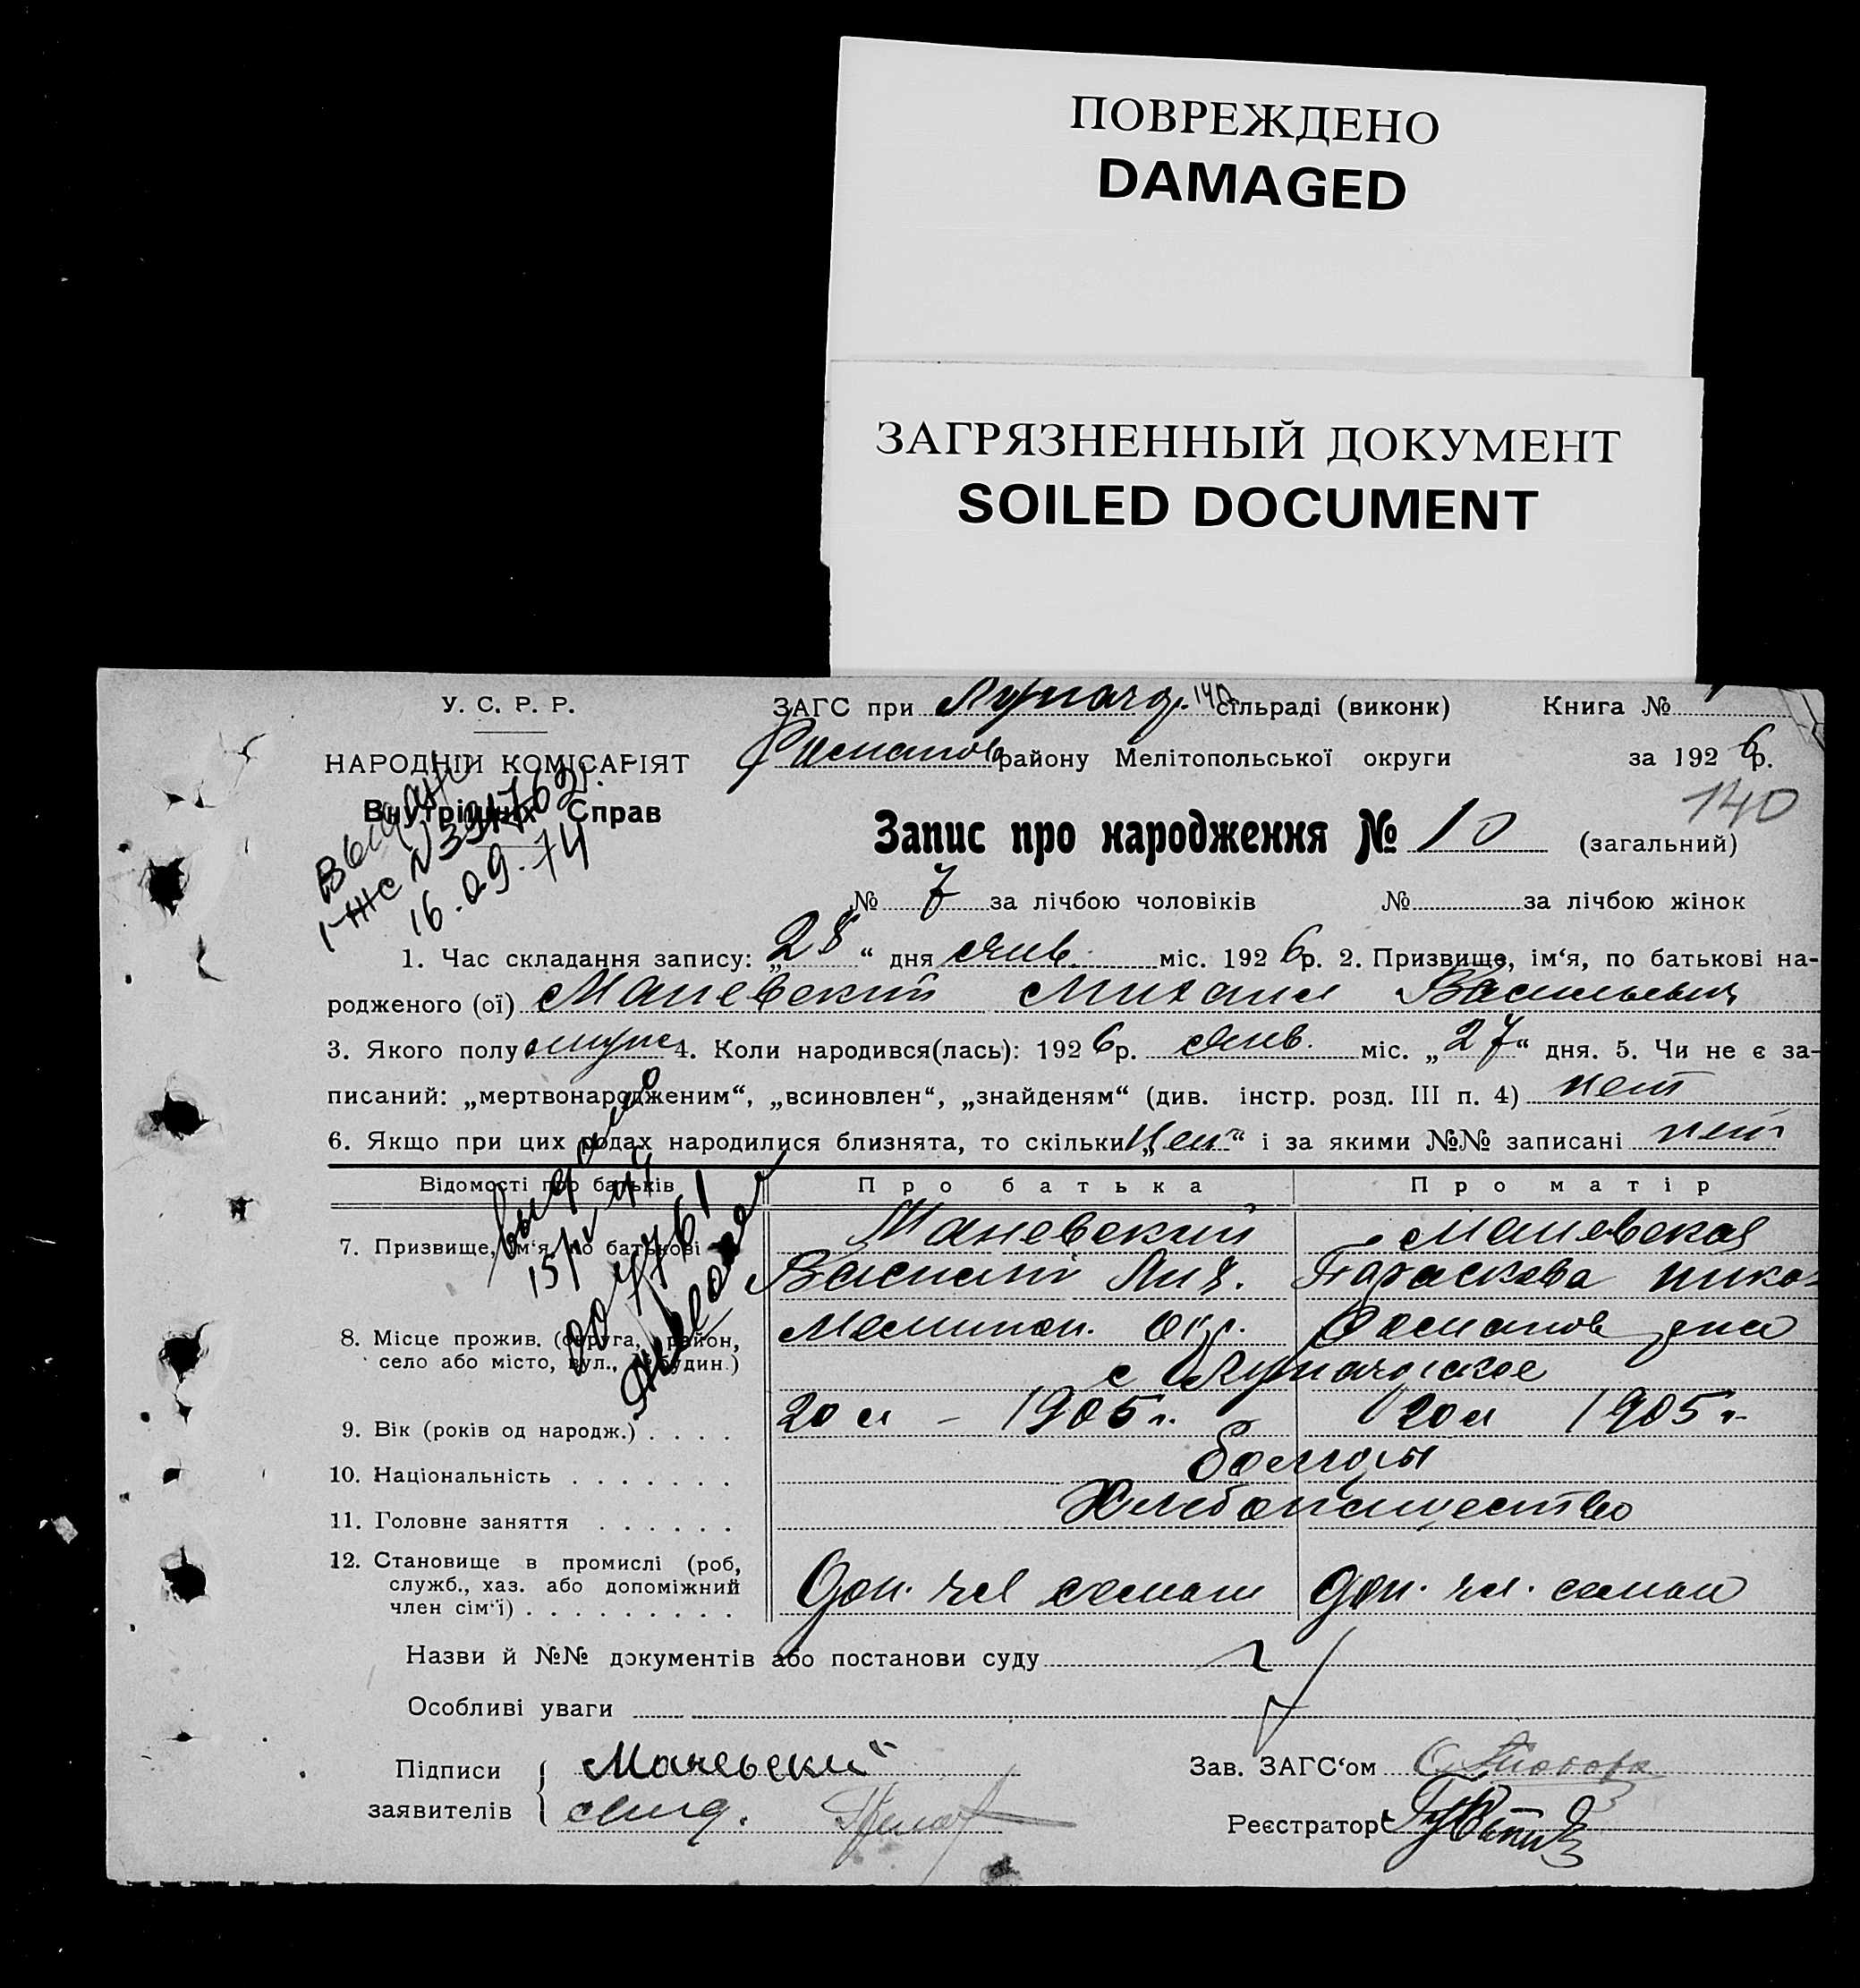 ПОВРЕЖДЕНО
DAMAGED
ЗАГРЯЗНЕННЫЙ ДОКУМЕНТ
SOILED DOCUMENT
У. С. Р. Р.
НАРОДНІЙ КОМІСАРІЯТ
Внутрішніх Справ
ЗАГС при сільраді (виконк) Книга №
району Мелітопольської округи за 1926 р.
140
Запис про народження № 10 (загальний)
№ 7 за лічбою чоловіків № за лічбою жінок
16.09.74
1. Час складання запису: „28“ дня янв. міс. 1926 р. 2. Призвище, ім‘я, по батькові на-
родженого (ої) Маневский Михаил Васильевич
3. Якого полу муж 4. Коли народився(лась): 1926 р. янв. міс. „27“ дня. 5. Чи не є за-
писаний: „мертвонародженим“, „всиновлен“, „знайденям“ (див. інстр. розд. III п. 4) нет
6. Якщо при цих родах народилися близнята, то скільки „нет“ і за якими №№ записані нет
Відомості про батьків Про батька Про матір
7. Призвище, ім‘я, по батькові Маневский Маневская
Василий Параскева Нико-
8. Місце прожив. (округа, район,
село або місто, вул., № будин.)
Мелитоп. Окр.
9. Вік (років од народж.) . . . . 20 л – 1905 г. 20 л 1905 г.
10. Національність . . . . . . . Болгары
11. Головне заняття . . . . . . Хлебопашество
12. Становище в промислі (роб,
служб., хаз. або допоміжний
член сім‘ї) . . . . . . . . .
доп. чл семьи доп. чл. семьи
Назви й №№ документів або постанови суду
Особливі уваги
Підписи
заявителів
Маневский
Зав. ЗАГС‘ом
Реєстратор